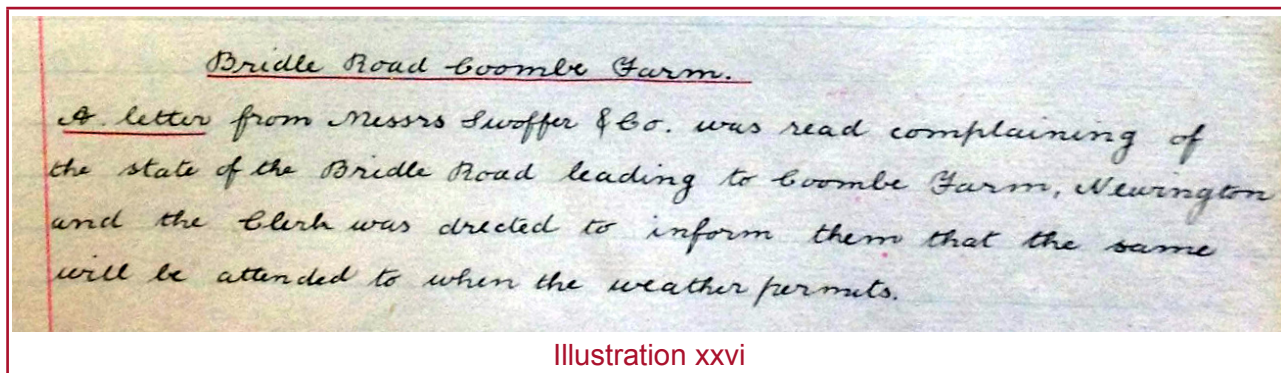 Bridle Road Coombe Farm.
A letter from Messrs Swoffer & Co. was read complaining of
the state of the Bridle Road leading to Coombe Farm, Newington
and the Clerk was drected to inform them that the same
will be attended to when the weather permits.
Illustration xxvi